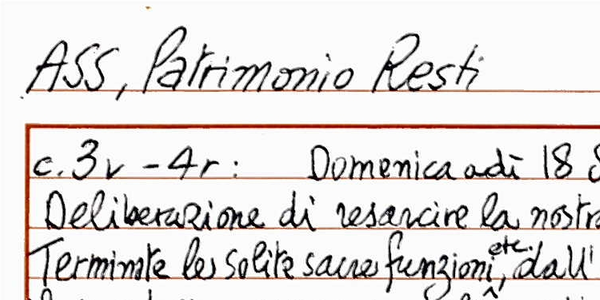 ASS, Patrimonio Resti
c. 3v - 4r: Domenica adì 18
Deliberazione di resarcire la nostra
Terminate le solite sacre funzioni, etc. dall'